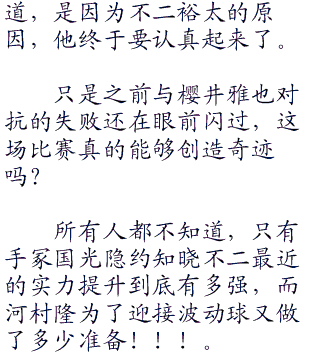 道，是因为不二裕太的原
因，他终于要认真起来了。
只是之前与樱井雅也对
抗的失败还在眼前闪过，这
场比赛真的能够创造奇迹
吗？
所有人都不知道，只有
手冢国光隐约知晓不二最近
的实力提升到底有多强，而
河村隆为了迎接波动球又做
了多少准备！！！。